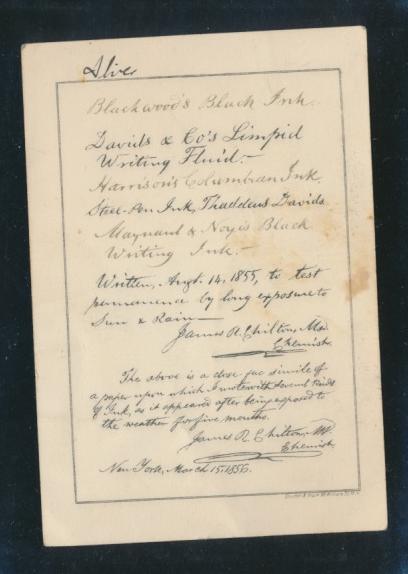 Blackwood's Black Ink.
Davids & Co's Limpid
Writing Fluid.-
Harrison's Columbian Ink.
Steel-Pen Ink, Thaddeus Davids
Maynard & Noyes Black
Writing Ink.-
Written, Augt. 14, 1855, to test
permanence by long exposure to
Sun & Rain-
James R. Chilton, MD.
Chemist.
The above is a close fac simile of
a paper upon which I wrote with several kinds
of Ink, as it appeared after being exposed to
the weather for five months.
James R. Chilton, MD
Chemist.
New York, March 15, 1856.